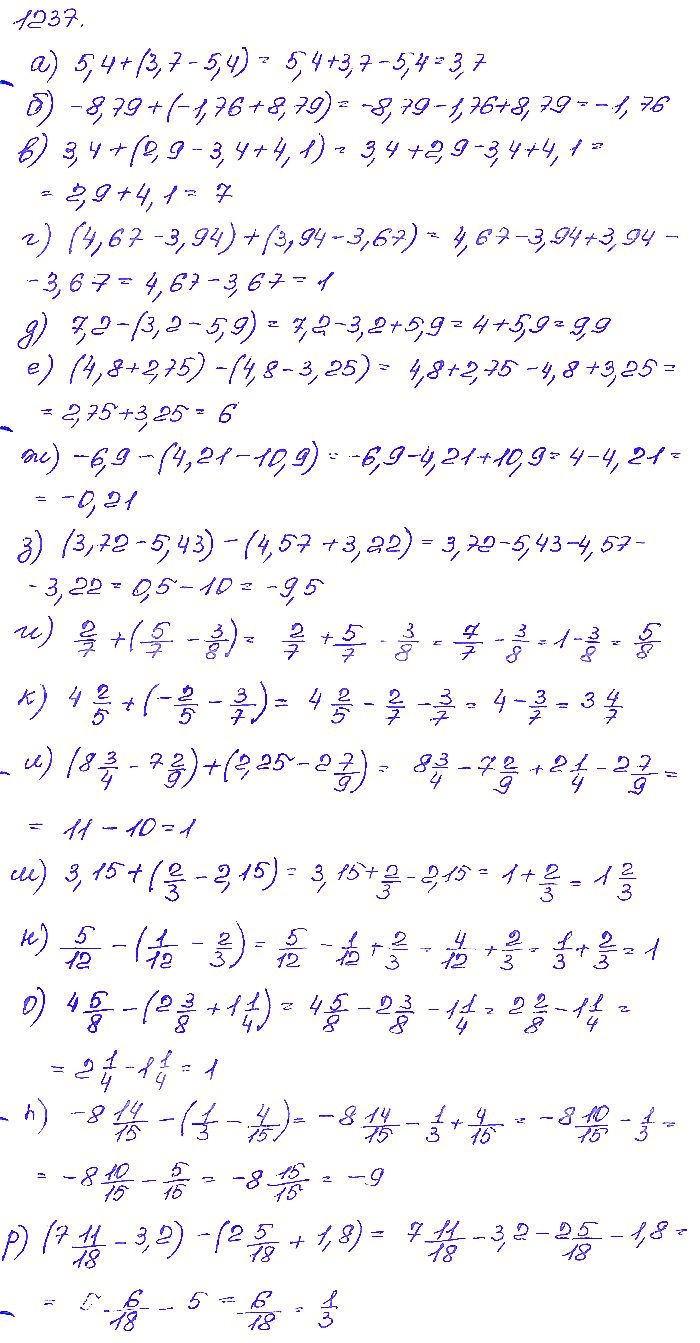 1237.
а) 5,4+(3,7-5,4)= 5,4+3,7-5,4=3,7
б) -8,79+(-1,76+8,79)= -8,79-1,76+8,79=-1,76
в) 3,4+(2,9-3,4+4,1)= 3,4+2,9-3,4+4,1=
= 2,9+4,1= 7
г) (4,67-3,94)+(3,94-3,67)= 4,67-3,94+3,94-
-3,67= 4,67-3,67=1
д) 7,2-(3,2-5,9)= 7,2-3,2+5,9=4+5,9=9,9
е) (4,8+2,75)-(4,8-3,25)= 4,8+2,75-4,8+3,25=
= 2,75+3,25= 6
ж) -6,9-(4,21-10,9)= -6,9-4,21+10,9=4-4,21=
= -0,21
з) (3,72-5,43)-(4,57+3,22)= 3,72-5,43-4,57-
-3,22= 0,5-10= -9,5
и) 2/7+(5/7-3/8)= 2/7+5/7-3/8=7/7-3/8=1-3/8=5/8
к) 4 2/5+(-2/5-3/7)= 4 2/5-2/7-3/7=4-3/7=3 4/7
л) (8 3/4-7 2/9)+(2,25-2 7/9)= 8 3/4-7 2/9+2 1/4-2 7/9=
= 11-10=1
м) 3,15+(2/3-2,15)= 3,15+2/3-2,15=1+2/3=1 2/3
н) 5/12-(1/12-2/3)=5/12-1/12+2/3=4/12+2/3=1/3+2/3=1
о) 4 5/8-(2 3/8+1 1/4)= 4 5/8-2 3/8-1 1/4=2 2/8-1 1/4=
= 2 1/4-1 1/4=1
п) -8 14/15-(1/3-4/15)= -8 14/15-1/3+4/15= -8 10/15-1/3=
= -8 10/15-5/15= -8 15/15= -9
р) (7 11/18-3,2)-(2 5/18+1,8)= 7 11/18-3,2-2 5/18-1,8=
= 5 6/18-5=6/18=1/3